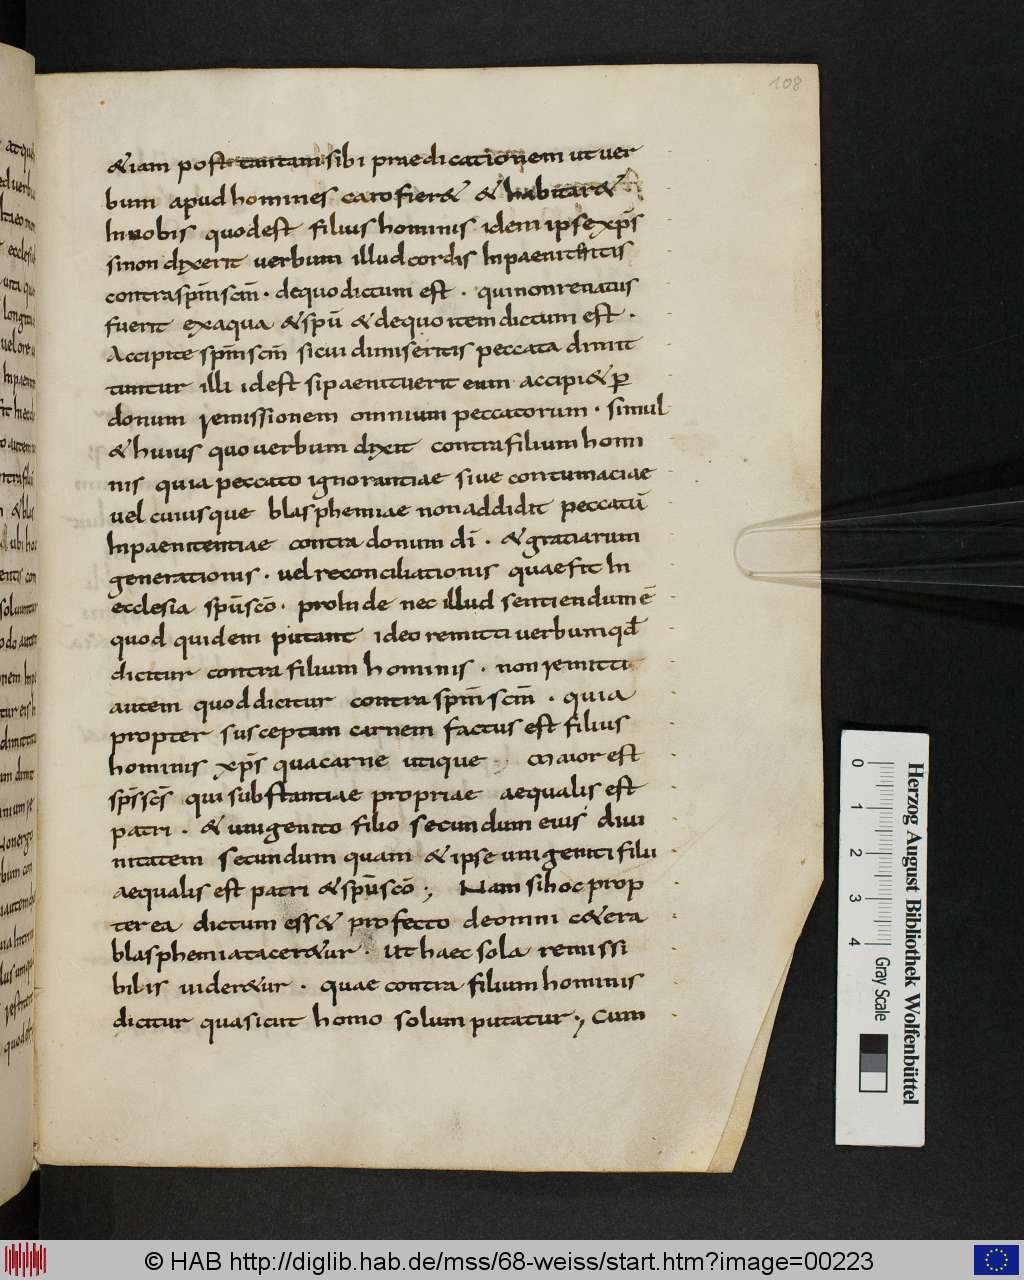 108
&iam post tantam sibi praedicationem ut uer
bum apud homines caro fier& & habitar&
In nobis quodest filius hominis idem ipse xp̄s
sinon dixerit uerbum illud cordis Inpaenitentis
contra sp̄m scm̄ · dequo dictum est · quinonrenatus
fuerit exaqua &spū & dequo item dictum est ·
Accipite sp̄m scm̄ sicui dimiseritis peccata dimit
tuntur illi idest sipaenituerit eum accipi& ꝑ
donum remissionem omnium peccatorum · simul
& huius quo uerbum dixit contra filium homi
nis quia peccato ignorantiae siue contumaciae
uel cuiusque blasphemiae non addidit peccatū
Inpaenitentiae contra donum dī · & gratiarum
generationis · uel reconciliationis quae fit In
ecclesia spū scō · proInde nec illud sentiendum ē
quod quidem putant ideo remitti uerbum qd̄
dicitur contra filium hominis · non remitti
autem quod dicitur contra sp̄m scm̄ · quia
propter susceptam carnem factus est filius
hominis xp̄s qua carne utique ; Maior est
sp̄s scs̄ qui substantiae propriae aequalis est
patri · & unigenito filio secundum eius diui
nitatem secundum quam & ipse unigeniti filii
aequalis est patri & spū scō ; Nam si hoc prop
ter ea dictum ess& profecto deomni c&era
blasphemia tacer&ur · Ut haec sola remissi
bilis uider&ur · quae contra filium hominis
dicitur quasi cut homo solum putatur ; Cum
Herzog August Bibliothek Wolfenbüttel
0 1 2 3 4 Gray Scale
© HAB http://diglib.hab.de/mss/68-weiss/start.htm?image=00223